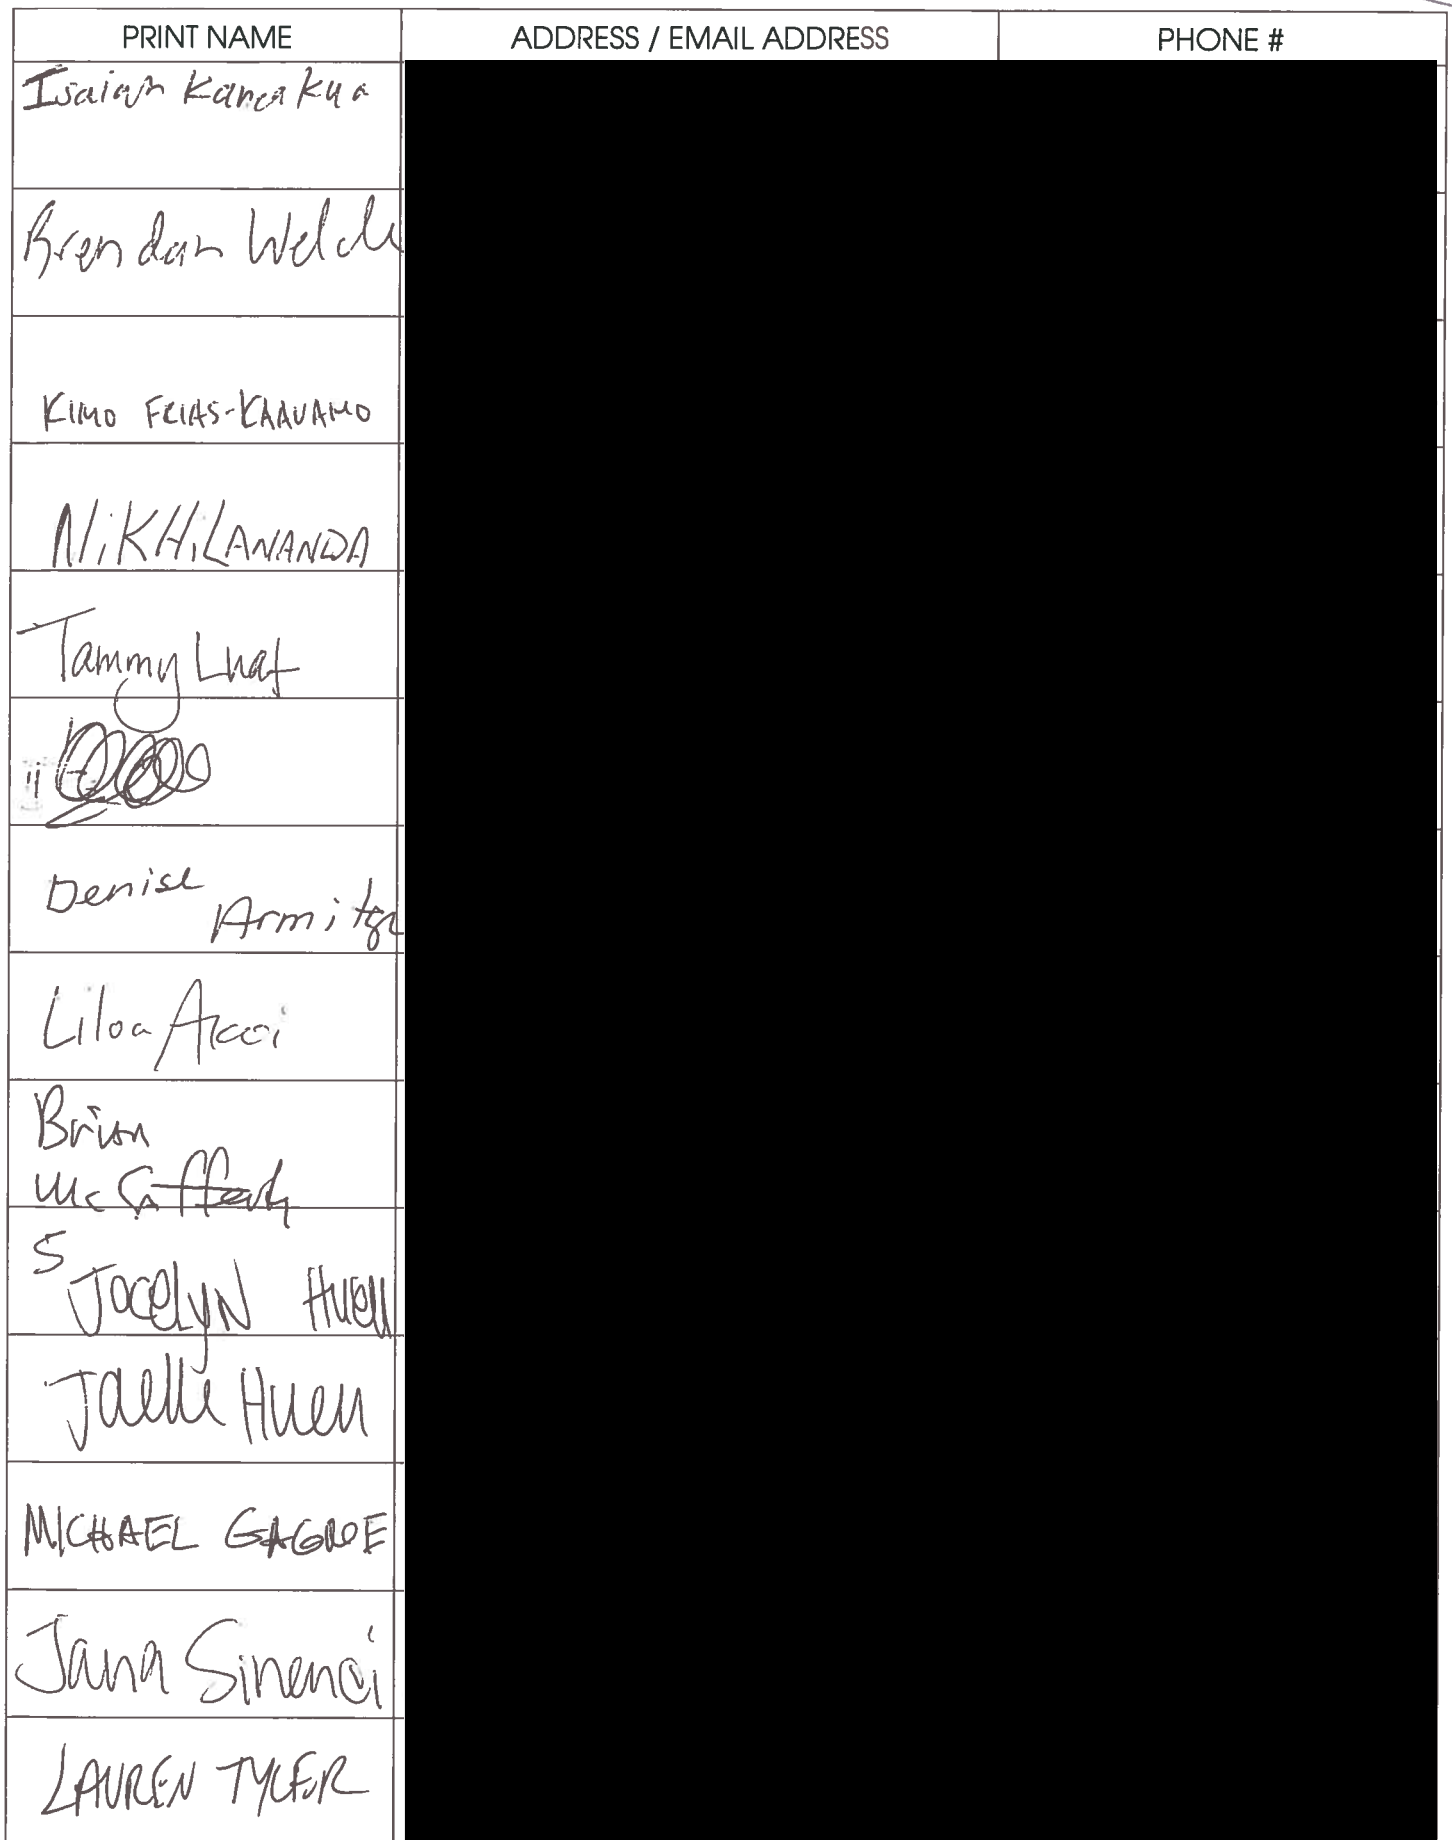 PRINT NAME ADDRESS / EMAIL ADDRESS PHONE #
Isaiah Kanakua
Brendan Welch
KIMO FRIAS-KAAUAMO
NiKHiLANANDA
Tammy Luat
Denise
Armitage
Liloa
Brian
McCafferty
S
JOCELYN HUEU
Jaelle Hueu
MICHAEL GAGNE
Jana Sinenci
LAUREN TYLER